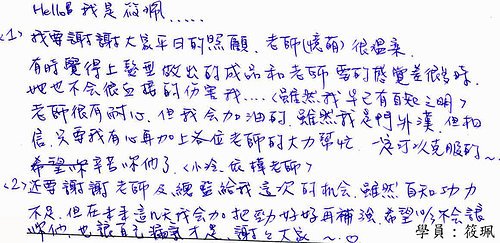 Hello!! 我是筱珮.....
<1> 我要謝謝大家平日的照顧、老師(曉萌)很溫柔、
有時覺得上髮型做出的成品和老師要的感覺差很多時,
她也不会很直接的伤害我....(雖然我早已有自知之明)
老師很有耐心,但我会加油的,雖然我是門外漢,但相
信,只要我有心再加上各位老師的大力幫忙,一定可以克服的~
辛苦你们了、<小冷、依樺老師>
<2> 还要謝謝老師及總監給我這次的机会,雖然自知功力
不足,但在未来這几天我会加把勁好好再補強,希望
你们也認自己 才是,謝謝大家~♡
學員:筱珮